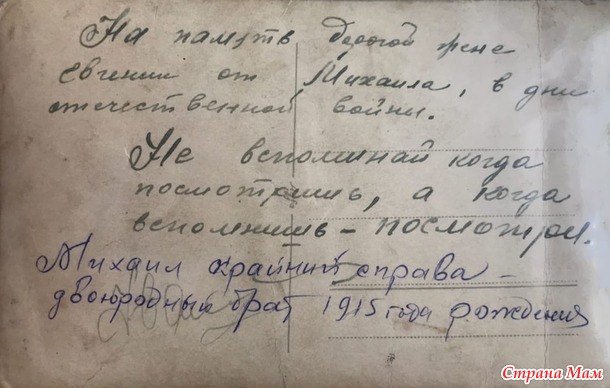 На память дорогой жене
Евгении от Михаила, в дни
отечественной войны.
Не вспоминай когда
посмотришь, а когда
вспомнишь – посмотри.
Михаил крайний справа –
двоюродный брат 1915 года рождения
Страна Мам